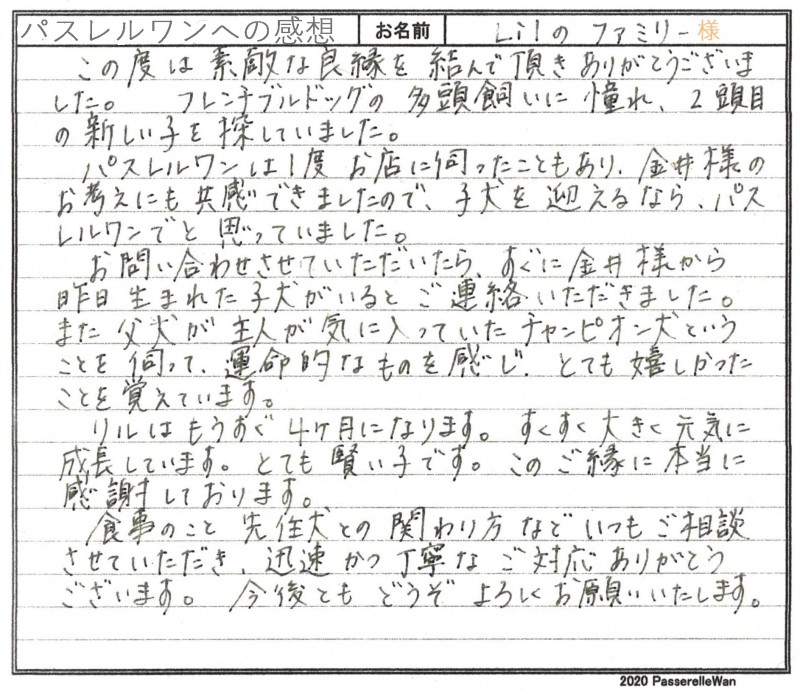 パスレルワンへの感想 お名前 Lilの ファミリー様
この度は素敵な良縁を結んで頂きありがとうございま
した。 フレンチブルドッグの多頭飼いに憧れ、2頭目
の新しい子を探していました。
パスレルワンは1度お店に伺ったこともあり、金井様の
お考えにも共感できましたので、子犬を迎えるなら、パス
レルワンでと思っていました。
お問い合わせさせていただいたら、すぐに金井様から
昨日生まれた子犬がいるとご連絡いただきました。
また父犬が主人が気に入っていたチャンピオン犬という
ことを伺って、運命的なものを感じ、とても嬉しかった
ことを覚えています。
リルはもうすぐ4ヶ月になります。すくすく大きく元気に
成長しています。とても賢い子です。このご縁に本当に
感謝しております。
食事のこと先住犬との関わり方などいつもご相談
させていただき、迅速かつ丁寧なご対応ありがとう
ございます。 今後ともどうぞよろしくお願いいたします。
2020 PasserelleWan